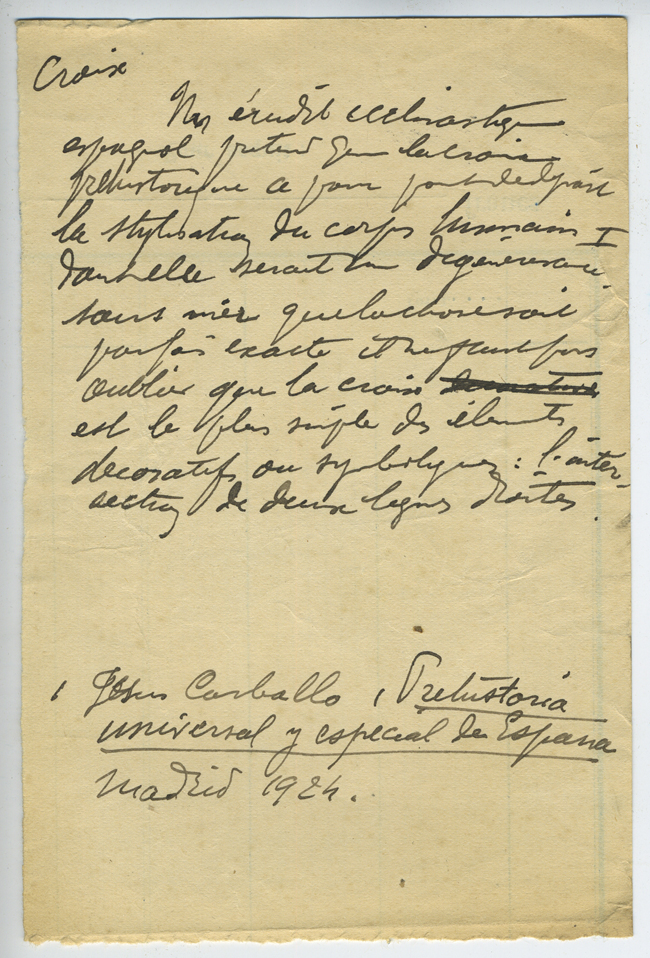 Croix
Un érudit ecclésiastique
espagnol prétend que la croix
préhistorique a pour point de départ
la stylisation du corps humain 1
dont elle serait une dégénérescence
sans nier que la chose soit
parfois exacte il ne faut pas
oublier que la croix
est le plus simple des éléments
décoratifs ou symboliques : l'inter-
section de deux lignes droites.
1 Jésus Carballo, Prehistoria
universal y especial de España
Madrid 1924.